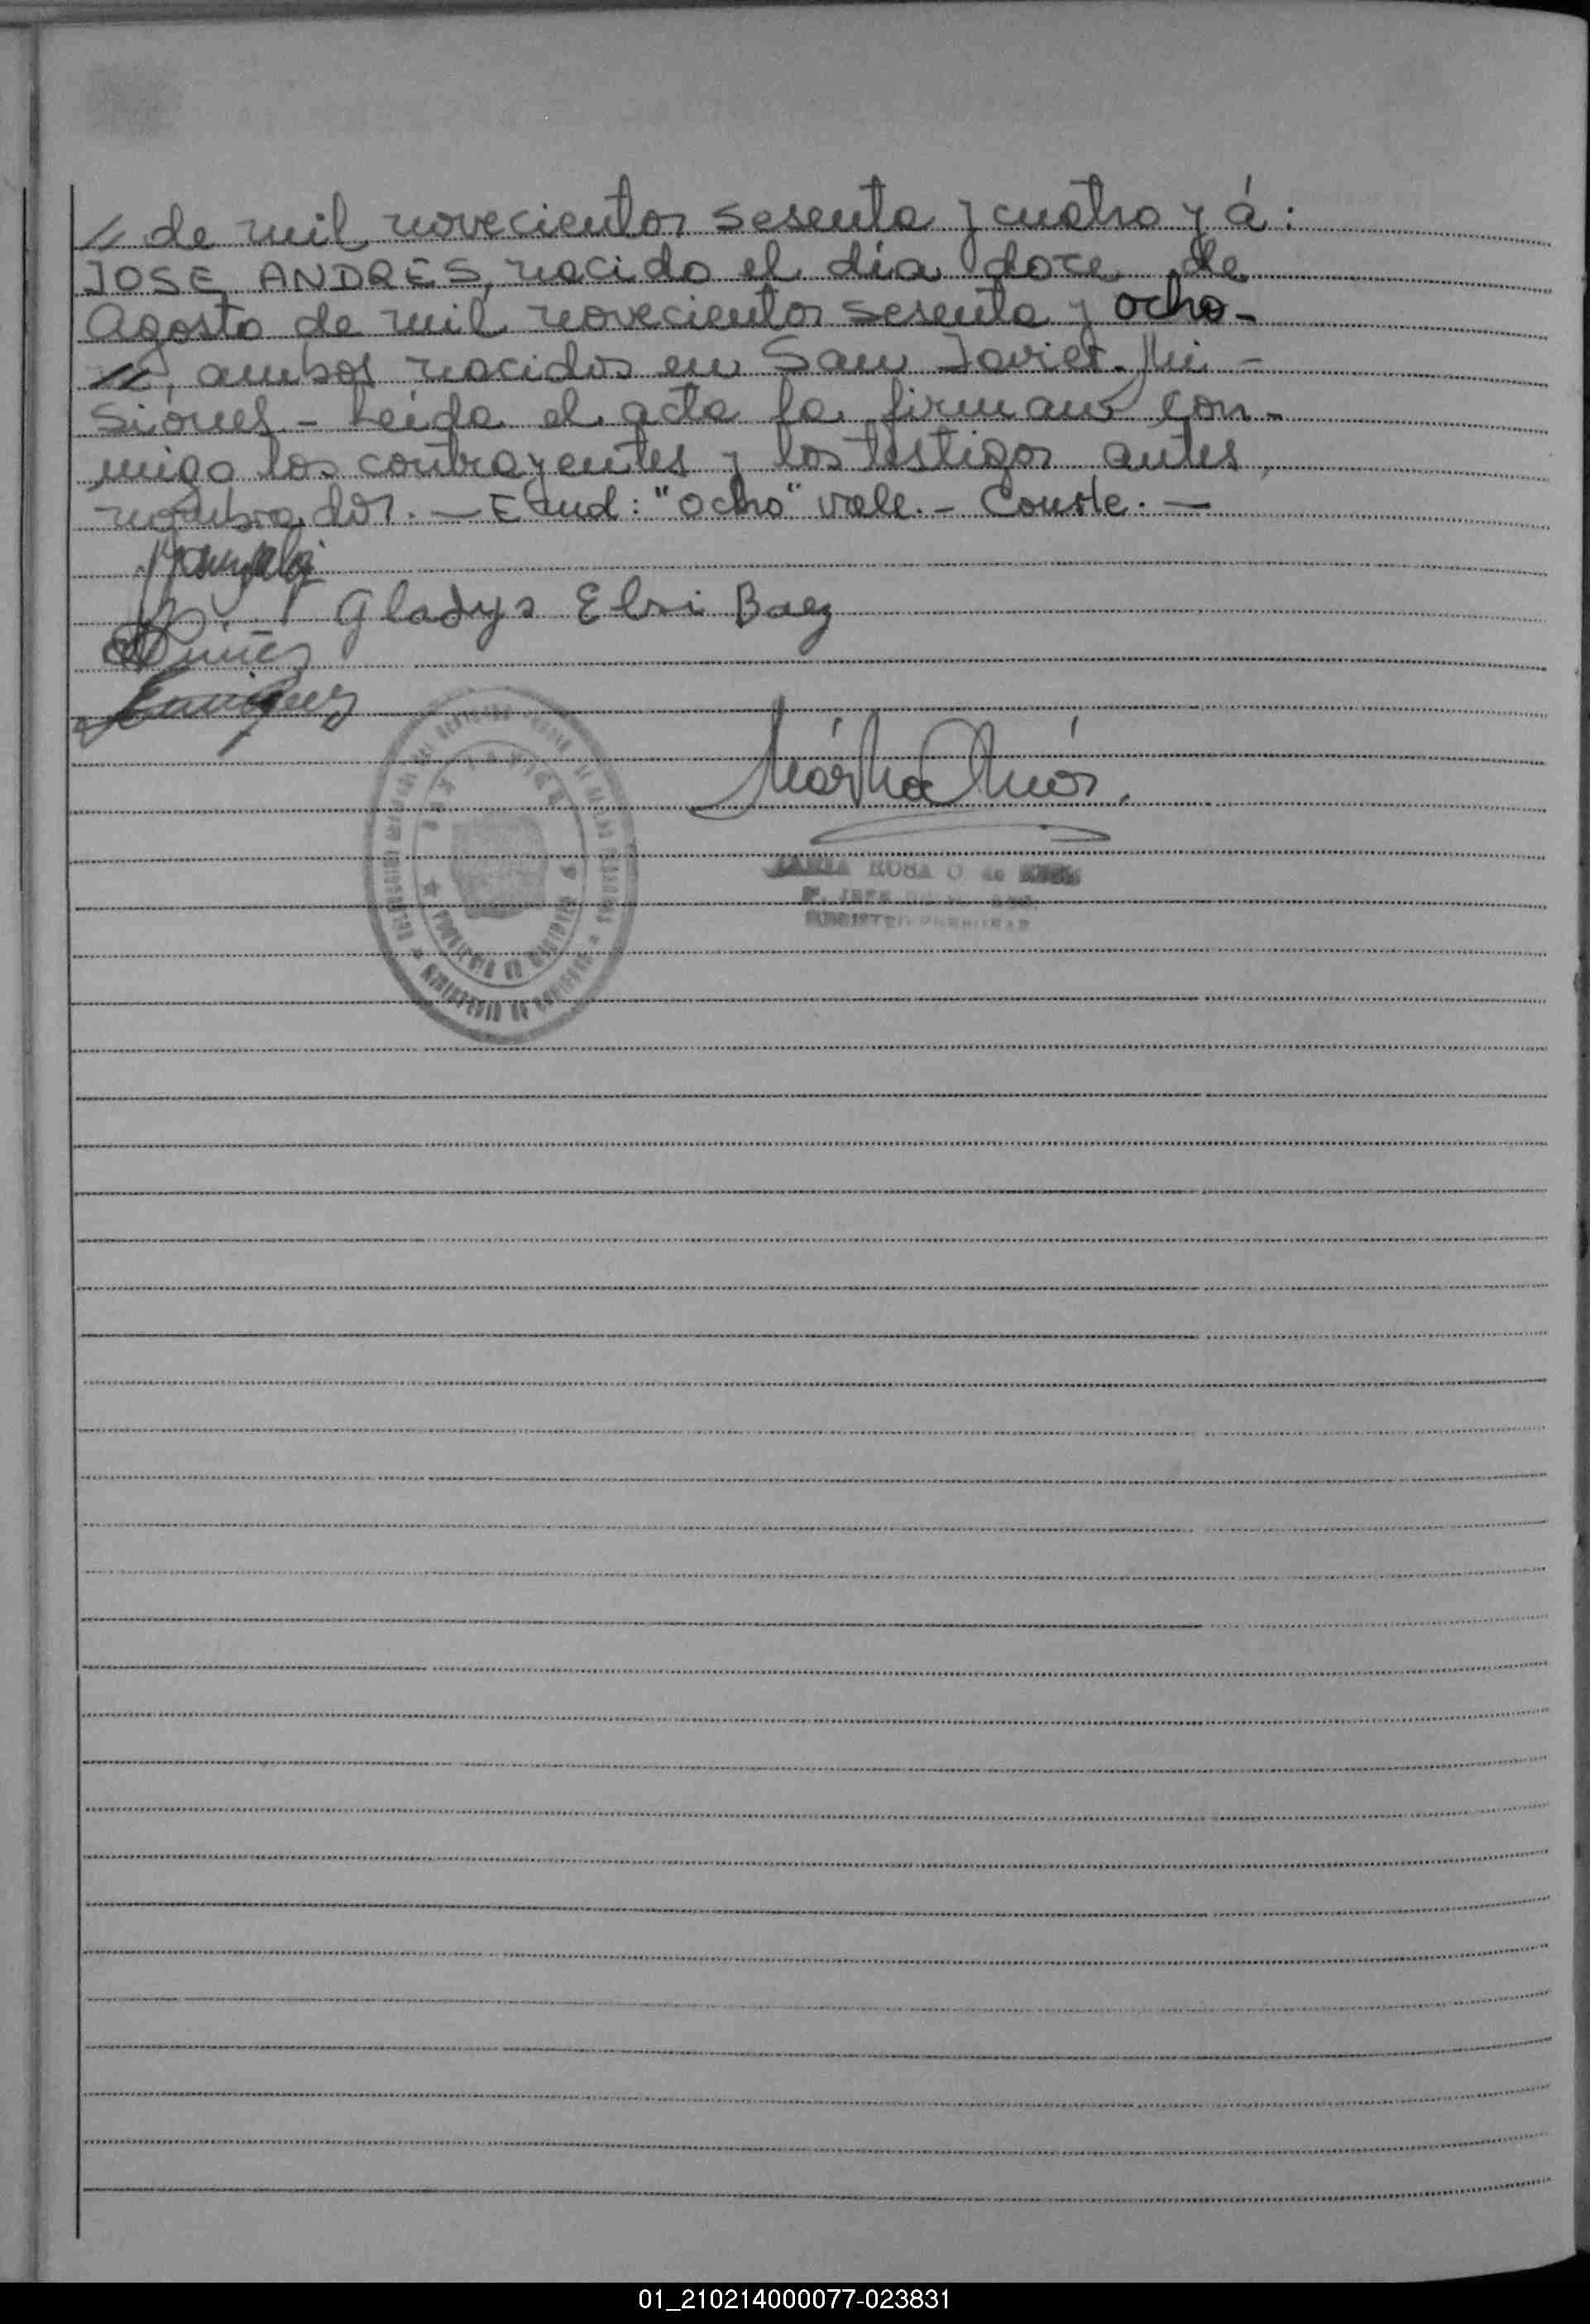 // de mil novecientos sesenta y cuatro y á:
JOSE ANDRES, nacido el día doce de
Agosto de mil novecientos sesenta y ocho-
//, ambos nacidos en San Javier. Mi-
siones - Leída el acta la firman con-
migo los contrayentes y los testigos antes
nombrados. — Emd: "ocho" vale. - Conste. —
Gladys Elsi Baez
ROSA O de
01_210214000077-023831